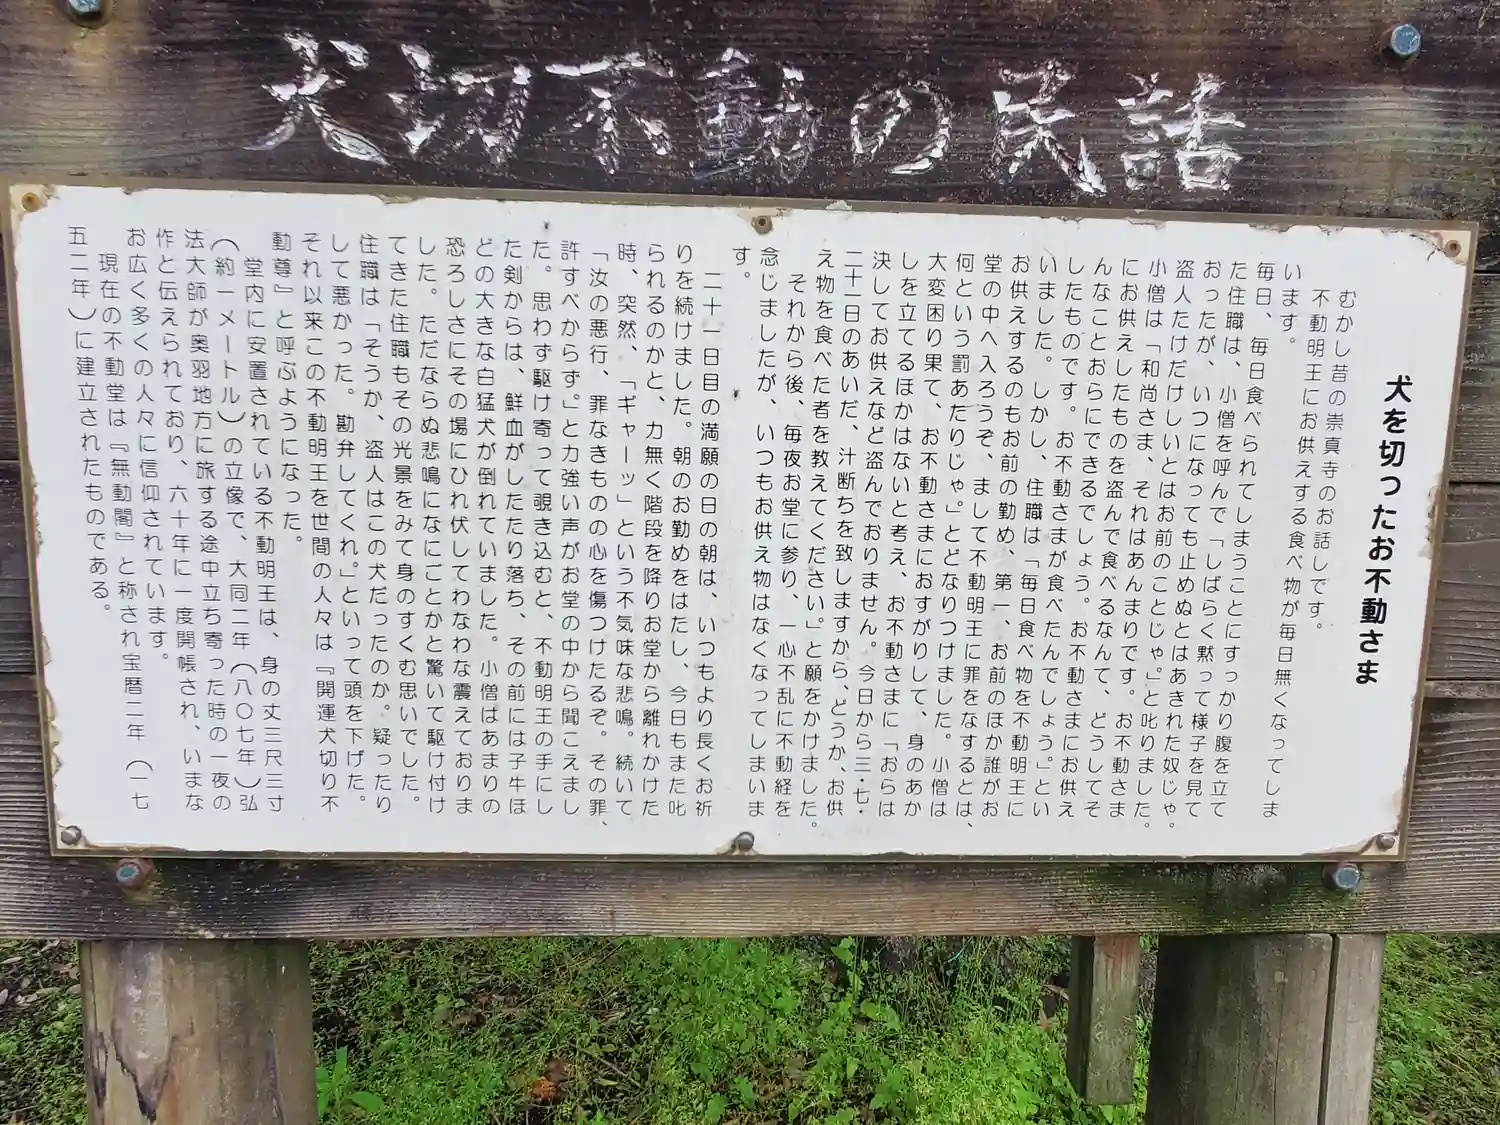 犬切不動の民話
犬を切ったお不動さま
むかし昔の崇真寺のお話しです。
不動明王にお供えする食べ物が毎日無くなってしま
います。
毎日、毎日食べられてしまうことにすっかり腹を立て
た住職は、小僧を呼んで「しばらく黙って様子を見て
おったが、いつになっても止めぬとはあきれた奴じゃ。
盗人たけだけしいとはお前のことじゃ。」と叱りました。
小僧は「和尚さま、それはあんまりです。お不動さま
にお供えしたものを盗んで食べるなんて、どうしてそ
んなことおらにできるでしょう。お不動さまにお供え
したものです。お不動さまが食べたんでしょう。」とい
いました。しかし、住職は「毎日食べ物を不動明王に
お供えするのもお前の勤め、第一、お前のほか誰がお
堂の中へ入ろうぞ、まして不動明王に罪をなするとは、
何という罰あたりじゃ。」とどなりつけました。小僧は
大変困り果て、お不動さまにおすがりして、身のあか
しを立てるほかはないと考え、お不動さまに「おらは
決してお供えなど盗んでおりません。今日から三・七・
二十一日のあいだ、汁断ちを致しますから、どうか、お供
え物を食べた者を教えてください。」と願をかけました。
それから後、毎夜お堂に参り、一心不乱に不動経を
念じましたが、いつもお供え物はなくなってしまいま
す。
二十一日目の満願の日の朝は、いつもより長くお祈
りを続けました。朝のお勤めをはたし、今日もまた叱
られるのかと、力無く階段を降りお堂から離れかけた
時、突然、「ギャーッ」という不気味な悲鳴。続いて
「汝の悪行、罪なきものの心を傷つけたるぞ。その罪、
許すべからず。」と力強い声がお堂の中から聞こえまし
た。思わず駆け寄って覗き込むと、不動明王の手にし
た剣からは、鮮血がしたたり落ち、その前には子牛ほ
どの大きな白猛犬が倒れていました。小僧はあまりの
恐ろしさにその場にひれ伏してわなわな震えておりま
した。ただならぬ悲鳴になにごとかと驚いて駆け付け
てきた住職もその光景をみて身のすくむ思いでした。
住職は「そうか、盗人はこの犬だったのか。疑ったり
して悪かった。勘弁してくれ。」といって頭を下げた。
それ以来この不動明王を世間の人々は『開運犬切り不
動尊』と呼ぶようになった。
堂内に安置されている不動明王は、身の丈三尺三寸
(約一メートル)の立像で、大同二年(八〇七年)弘
法大師が奥羽地方に旅する途中立ち寄った時の一夜の
作と伝えられており、六十年に一度開帳され、いまな
お広く多くの人々に信仰されています。
現在の不動堂は『無動閣』と称され宝暦二年(一七
五二年)に建立されたものである。